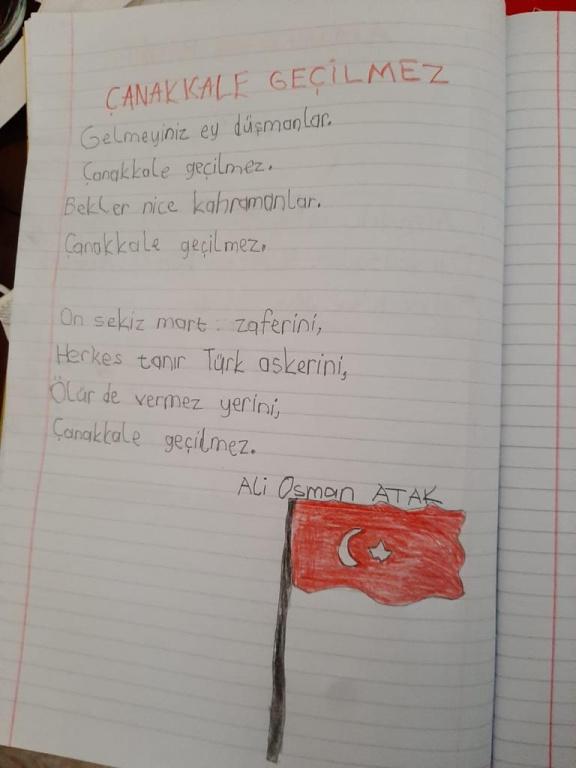 ÇANAKKALE GEÇİLMEZ
Gelmeyiniz ey düşmanlar.
Çanakkale geçilmez.
Bekler nice kahramanlar.
Çanakkale geçilmez.
On sekiz mart : zaferini,
Herkes tanır Türk askerini,
Ölür de vermez yerini,
Çanakkale geçilmez.
Ali Osman ATAK